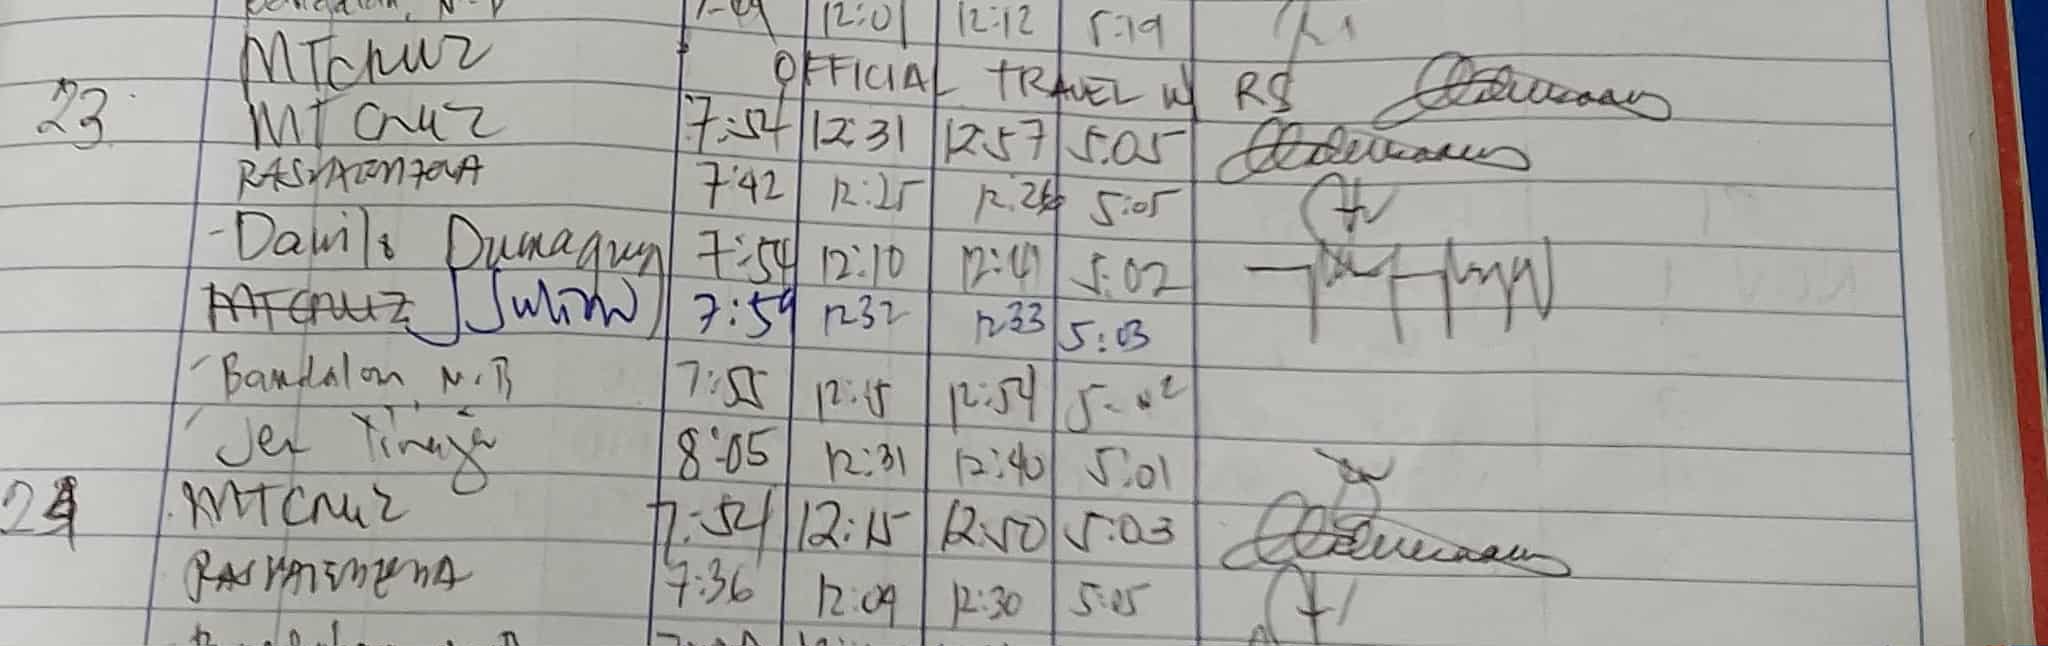 12:01 12:12 5:19
MTCruz OFFICIAL TRAVEL W/ RS
23 MT Cruz 7:54 12:31 12:57 5:05
7:42 12:25 5:05
- Danilo Dumaguin 7:54 12:10 12:41 5:02
MTCruz Julius 7:59 1232 1233 5:03
Bandalan, N.B 7:55 12:15 12:54
Jer 8:05 12:31 12:40 5:01
24 MTCruz 7:54 12:15 12:50 5:03
7:36 12:09 12:30 5:05